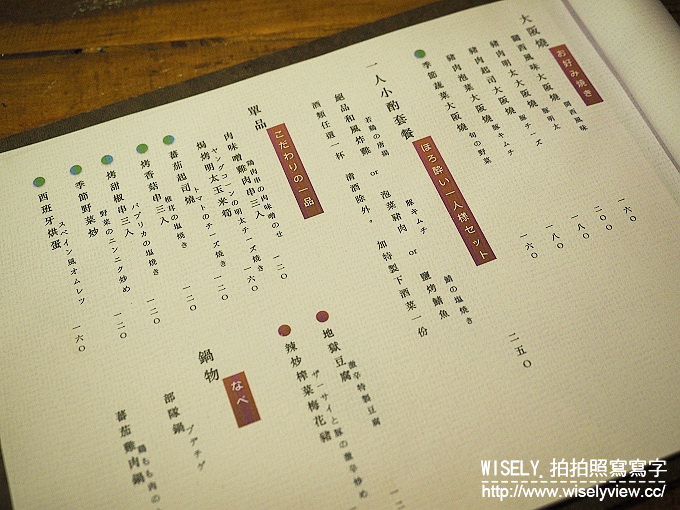 大阪燒
お好み燒き
關西風味大阪燒 関西風
豬肉明太大阪燒 豚明太
豬肉起司大阪燒 豚チーズ
豬肉泡菜大阪燒 豚キムチ
季節蔬菜大阪燒 旬の野菜
一六〇
二〇〇
一八〇
一八〇
一六〇
一人小酌套餐
ほろ酔い一人様セット
絕品和風炸雞 or 泡菜豬肉 or 鹽烤鯖魚
若鶏の唐揚 豚キムチ 鯖の塩焼き
酒類任選一杯 清酒除外。 加特製下酒菜一份
二五〇
單品
こだわりの一品
肉味噌雞肉串三入 鶏肉串の肉味噌のせ 一二〇
焗烤明太玉米筍 ヤングコーンの明太チーズ焼き 一六〇
蕃茄起司燒 トマトのチーズ焼き 一二〇
烤香菇串三入 椎茸の塩焼き 一二〇
烤甜椒串三入 パプリカの塩焼き 一二〇
季節野菜炒 野菜のニンニク炒め 一二〇
西班牙烘蛋 スペイン風オムレツ 一六〇
地獄豆腐 激辛特製豆腐
辣炒榨菜梅花豬 ザーサイと豚の激辛炒め
鍋物
なべ
部隊鍋 プデチゲ
蕃茄雞肉鍋 鶏もも肉の
WISELY. 拍拍照寫寫字
http://www.wiselyview.cc/